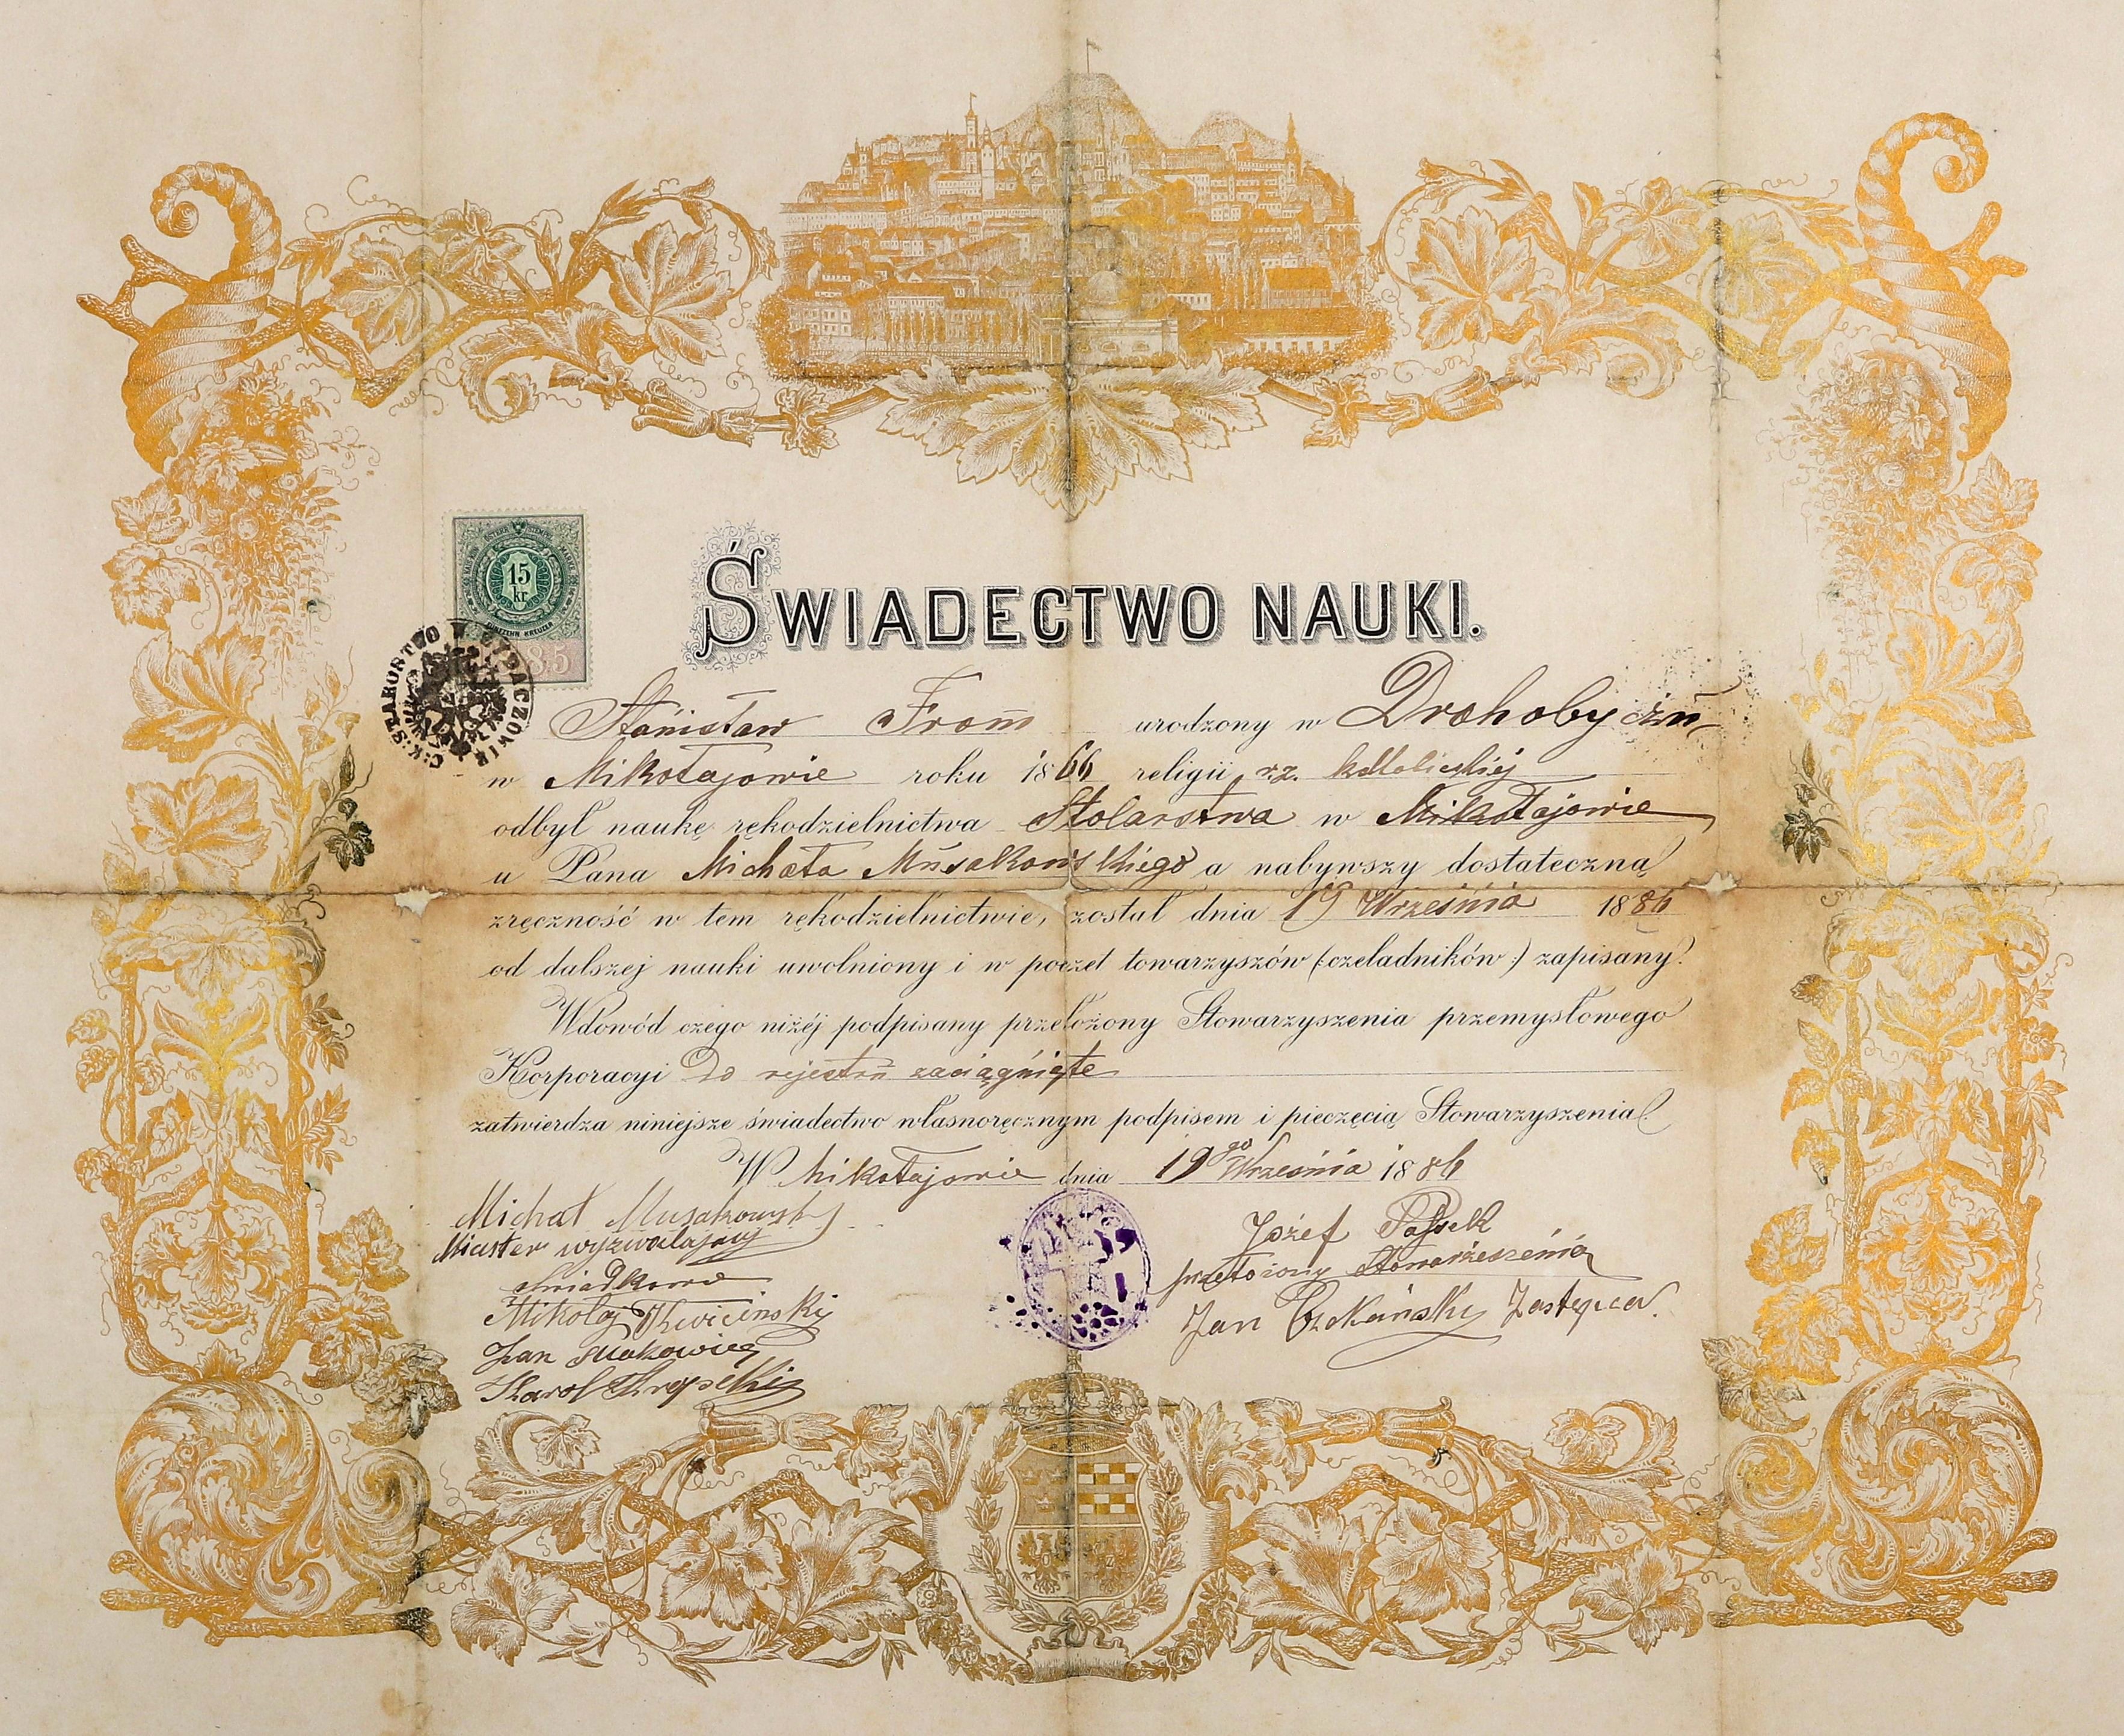 15
kr.
FÜNFZEHN KREUZER
C. K. STAROSTWO W ŻYDACZOWIE
ŚWIADECTWO NAUKI.
Stanisław From urodzony w Drohobyczu
w Mikołajowie roku 1866 religii rz. katolickiéj
odbył naukę rękodzielnictwa Stolarstwa w Mikołajowie
u Pana Michała Musakowskiego a nabywszy dostateczną
zręczność w tem rękodzielnictwie, został dnia 19 Września 1886
od dalszej nauki uwolniony i w poczet towarzyszów (:czeladników:) zapisany.
Wdowód czego niżéj podpisany przełożony Stowarzyszenia przemysłowego
Korporacyi Do rejestru zaciągnięte
zatwierdza niniejsze świadectwo własnoręcznym podpisem i pieczęcią Stowarzyszenia
W Mikołajowie dnia 19go Września 1886
Michał Musakowski
Majster wyzwalający
Świadkowie
Mikołaj
Jan
Karol
Józef
przełożony Stowarzeszenia
Jan Zastępca.